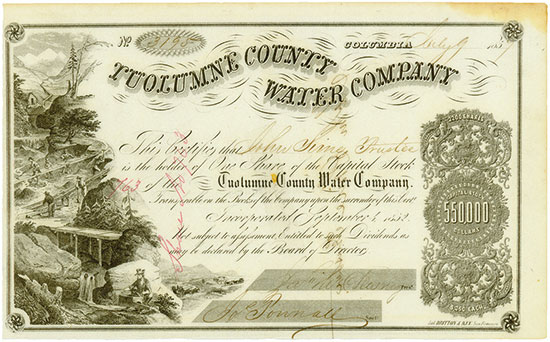 No
COLUMBIA July 185
TUOLUMNE COUNTY
WATER COMPANY
This Certifies that John Trustee
is the holder of One Share of the Capital Stock
of the Tuolumne County Water Company.
Transferable on the Books of the Company upon the surrender of this Cert
Incorporated September 1852
Not subject to assessment, Entitled to such Dividends as
may be declared by the Board of Directors,
Pres't
Jos Pownall Sec'y
2200 SHARES
$550000
DOLLARS
$250 EACH
Lith. BRITTON & REY San Francisco